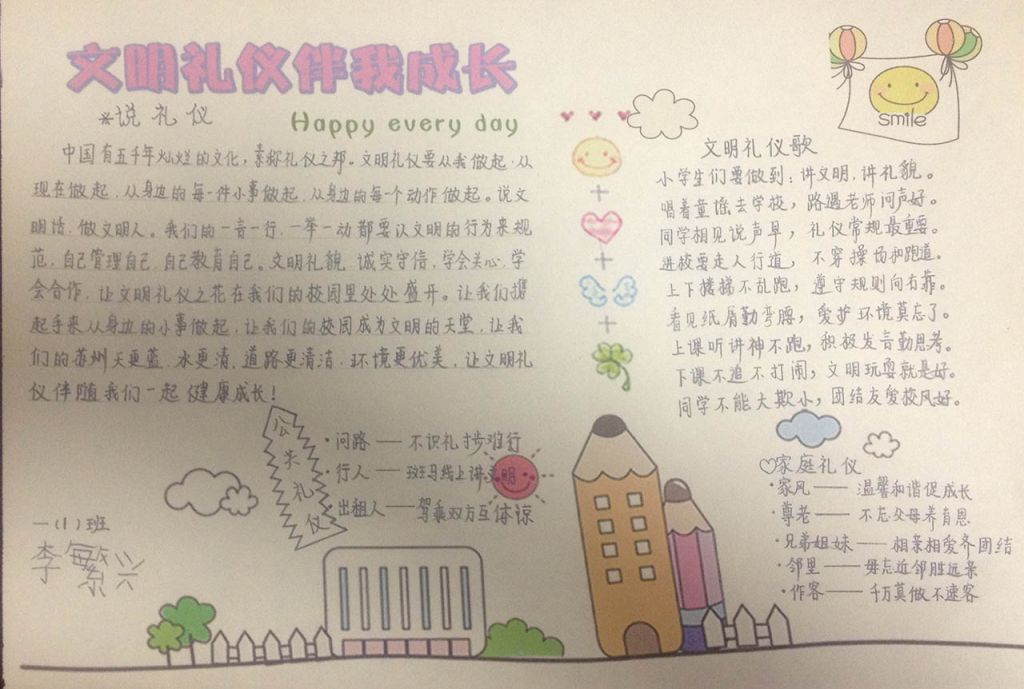 文明礼仪伴我成长
*说礼仪
Happy every day
中国有五千年灿烂的文化，素称礼仪之邦。文明礼仪要从我做起.从
现在做起.从身边的每一件小事做起.从身边的每一个动作做起。说文
明话.做文明人。我们的一言一行.一举一动都要以文明的行为来规
范.自己管理自己.自己教育自己。文明礼貌.诚实守信.学会关心.学
会合作.让文明礼仪之花在我们的校园里处处盛开。让我们携
起手来从身边的小事做起.让我们的校园成为文明的天堂.让我
们的苏州天更蓝.水更清.道路更清洁.环境更优美.让文明礼
仪伴随我们一起健康成长！
公关礼仪
·问路——不识礼寸步难行
·行人——斑马线上讲文明
·出租人——驾乘双方互体谅
一(1)班
李繁兴
smile
文明礼仪歌
小学生们要做到：讲文明.讲礼貌。
唱着童谣去学校，路遇老师问声好。
同学相见说声早，礼仪常规最重要。
进校要走人行道，不穿操场和跑道。
上下楼梯不乱跑，遵守规则向右靠。
看见纸屑勤弯腰，爱护环境莫忘了。
上课听讲神不跑，积极发言勤思考。
下课不追不打闹，文明玩耍就是好。
同学不能大欺小，团结友爱校风好。
♡家庭礼仪
·家风——温馨和谐促成长
·尊老——不忘父母养育恩
·兄弟姐妹——相亲相爱齐团结
·邻里——毋忘近邻胜远亲
·作客——千万莫做不速客